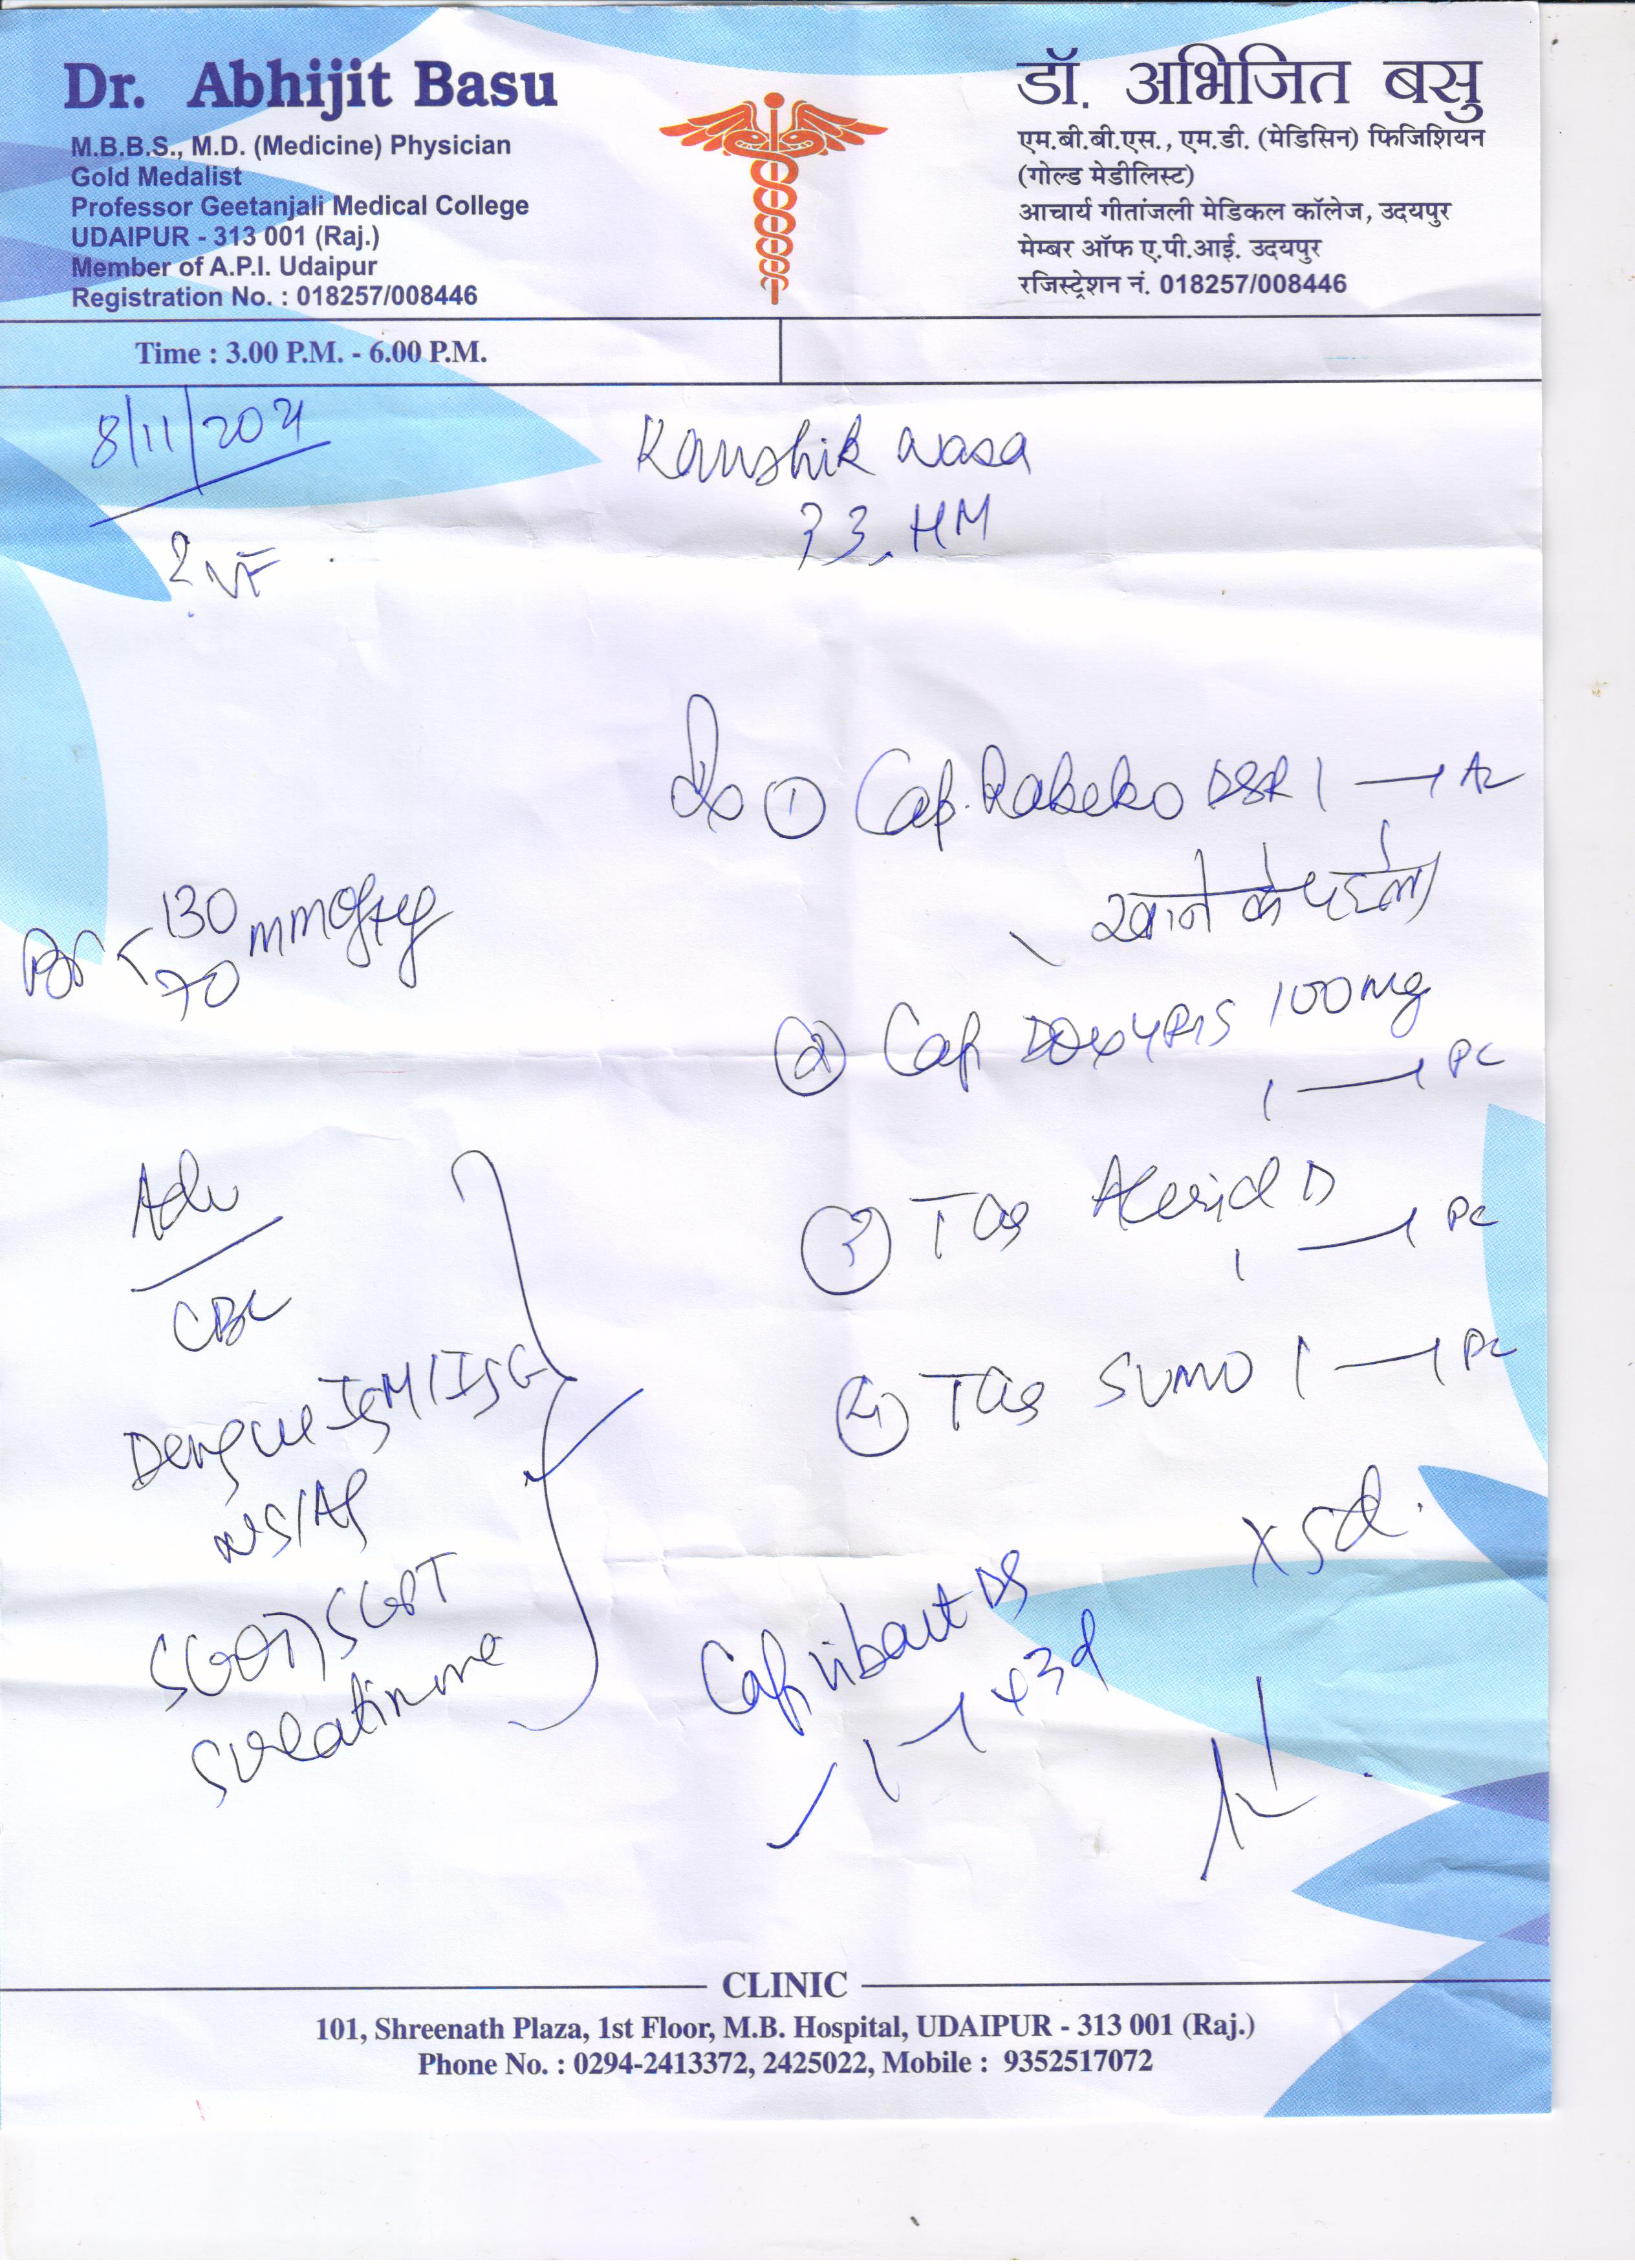 Dr. Abhijit Basu
M.B.B.S., M.D. (Medicine) Physician
Gold Medalist
Professor Geetanjali Medical College
UDAIPUR - 313 001 (Raj.)
Member of A.P.I. Udaipur
Registration No. : 018257/008446
डॉ. अभिजित बसु
एम.बी.बी.एस., एम.डी. (मेडिसिन) फिजिशियन
(गोल्ड मेडीलिस्ट)
आचार्य गीतांजली मेडिकल कॉलेज, उदयपुर
मेम्बर ऑफ ए.पी.आई. उदयपुर
रजिस्ट्रेशन नं. 018257/008446
Time : 3.00 P.M. - 6.00 P.M.
8/11/2021
Kaushik
HM
? VF
130 mmofHg
70
Adv
CBC
Dengue IgM/IgG
NS1Ag
SGOT/SGPT
S creatinine
Rx ① Cap. DSR 1 → AC
खाने के पहले
② Cap 100mg
1 → PC
③ Tab D
1 → PC
④ Tab SUMO 1 → PC
x 5d.
Cap DS
1 → x3d
CLINIC
101, Shreenath Plaza, 1st Floor, M.B. Hospital, UDAIPUR - 313 001 (Raj.)
Phone No. : 0294-2413372, 2425022, Mobile : 9352517072